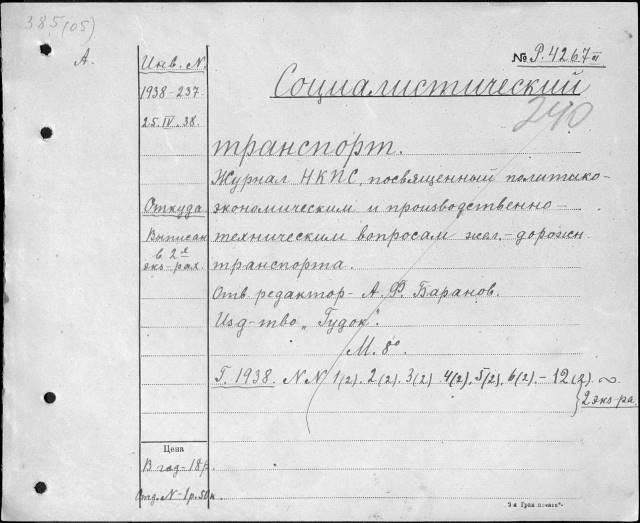 385(05)
А.
№ Р.4267 III
Инв. N
1938-237.
25.IV.38.
Социалистический
240
транспорт.
Журнал НКПС, посвященный политико-
Откуда
экономическим и производственно-
Выписан
в 2х
экз-рах.
техническим вопросам жел.-дорожн.
транспорта.
Отв. редактор - А. Ф. Баранов.
Изд-тво „Гудок".
М. 8°
Г. 1938. N N 1(2). 2(2). 3(2) 4(2). 5(2), 6(2).-12(2).
2 экз-ра.
Цена
В год-18р.
Отд. N-1р.50к.